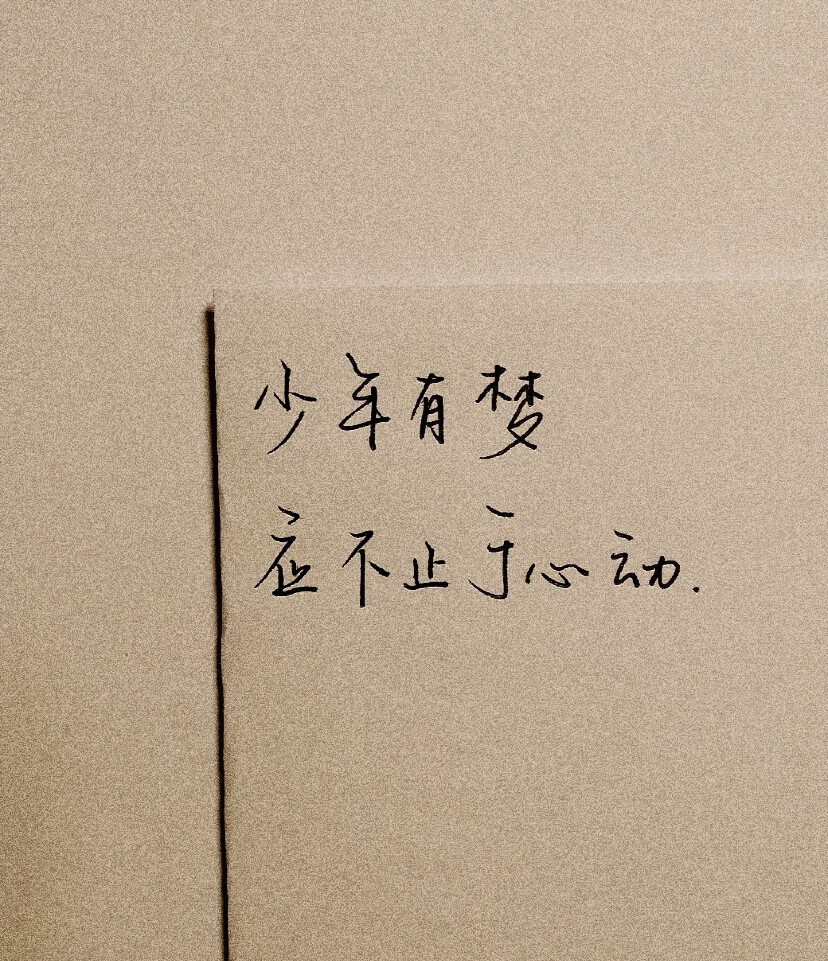 少年有梦
应不止于心动.